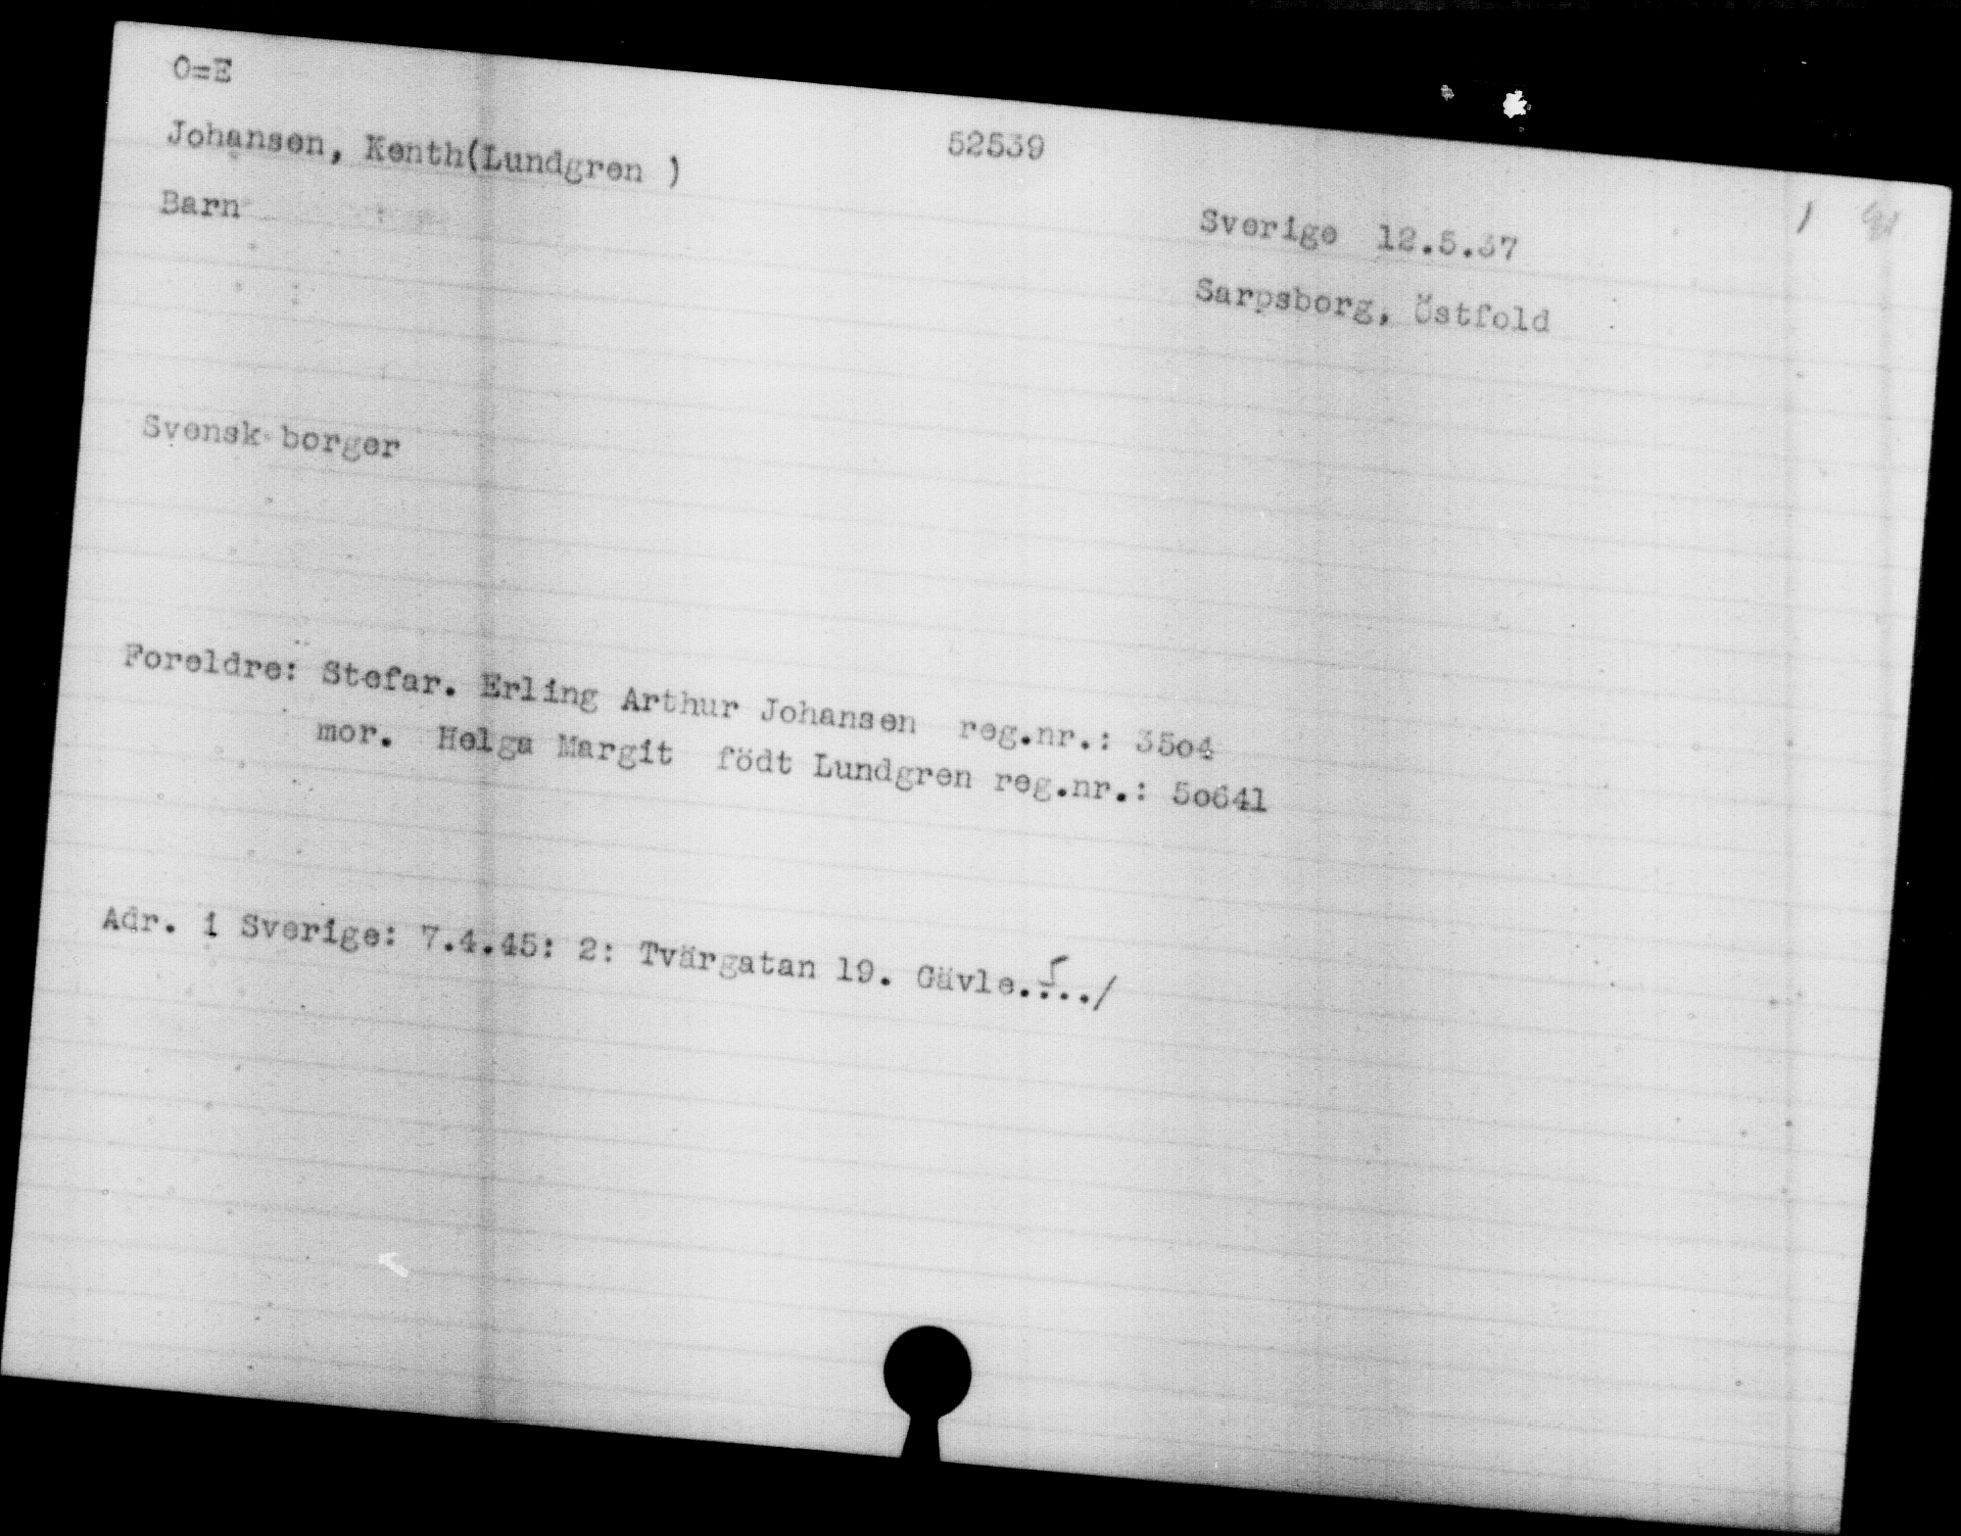 O=E
Johansen, Kenth(Lundgren )
52539
Barn
Sverige 12.5.37
Sarpsborg, Östfold
Svensk borger
Foreldre: Stefar. Erling Arthur Johansen reg.nr.: 35o4
mor. Helga Margit födt Lundgren reg.nr.: 5o641
Adr. i Sverige: 7.4.45: 2: Tvärgatan 19. Gävle..../